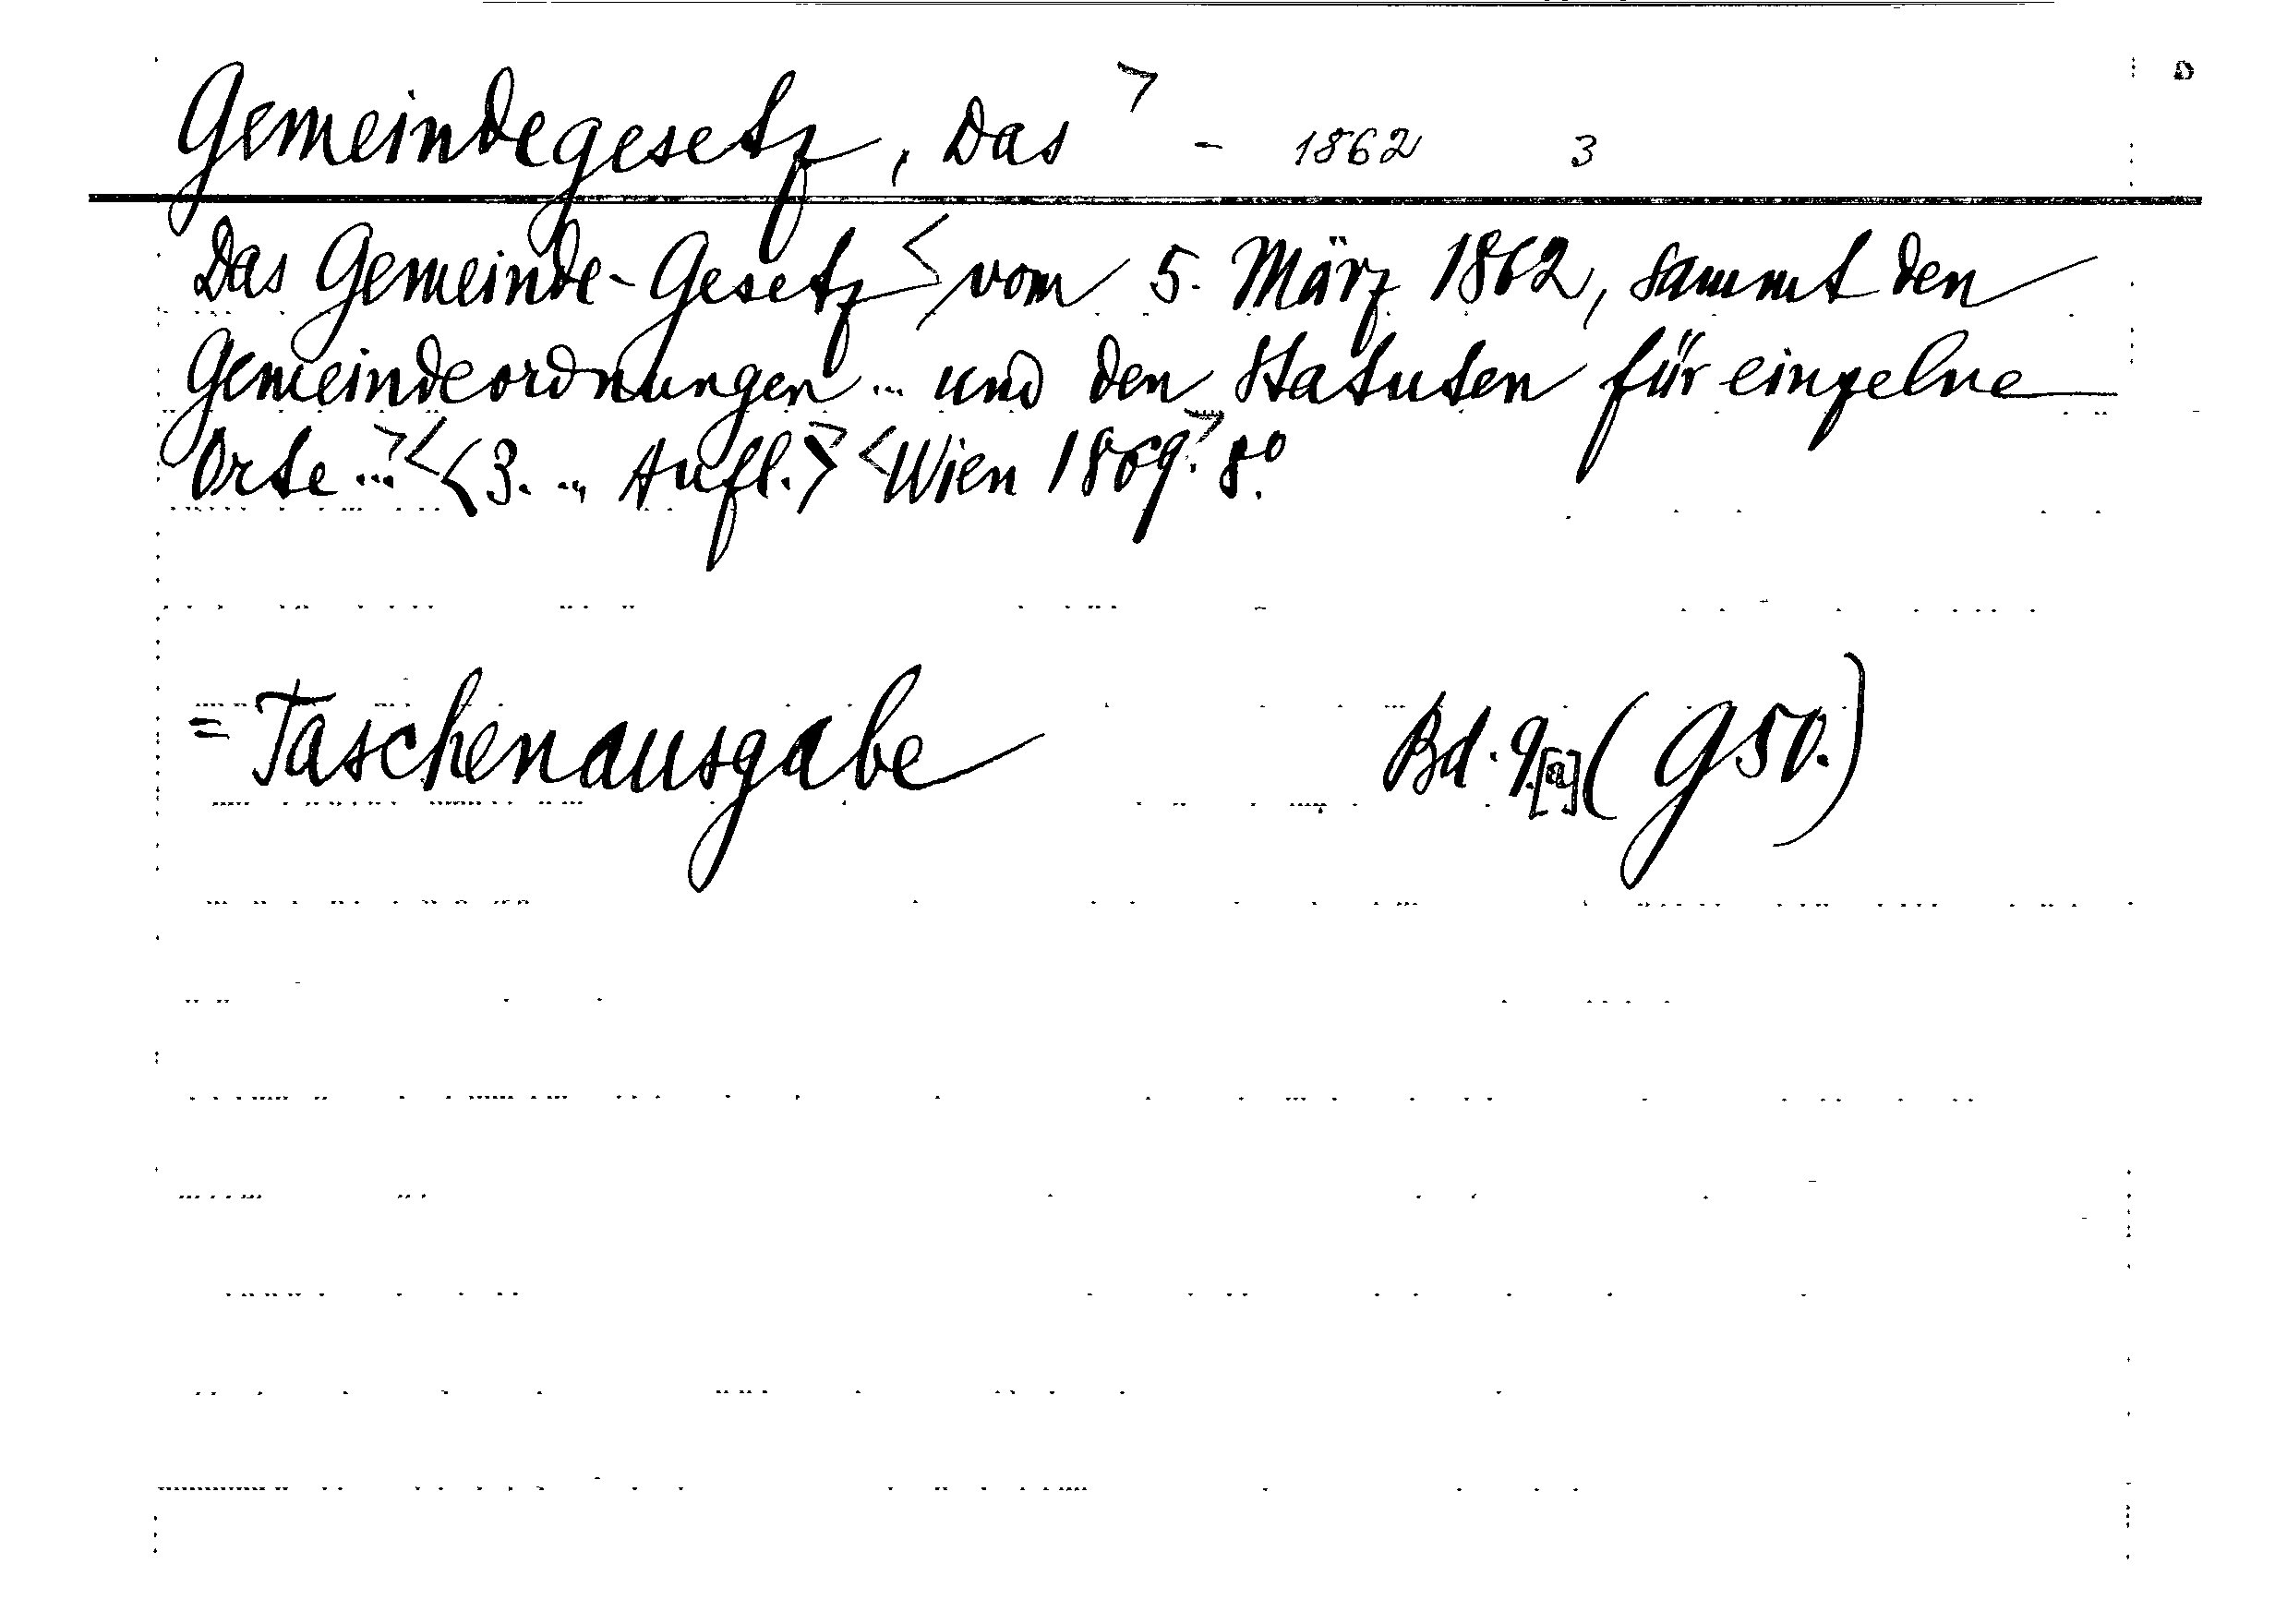 Gemeindegesetz, Das > - 1862 3
Das Gemeinde-Gesetz < vom 5. März 1862, sammt den
Gemeindeordnungen ... und den Statuten für einzelne
Orte ...> < <3. ... Aufl.> <Wien 1869.> 8°.
= Taschenausgabe Bd. 9.[a] (G50.)